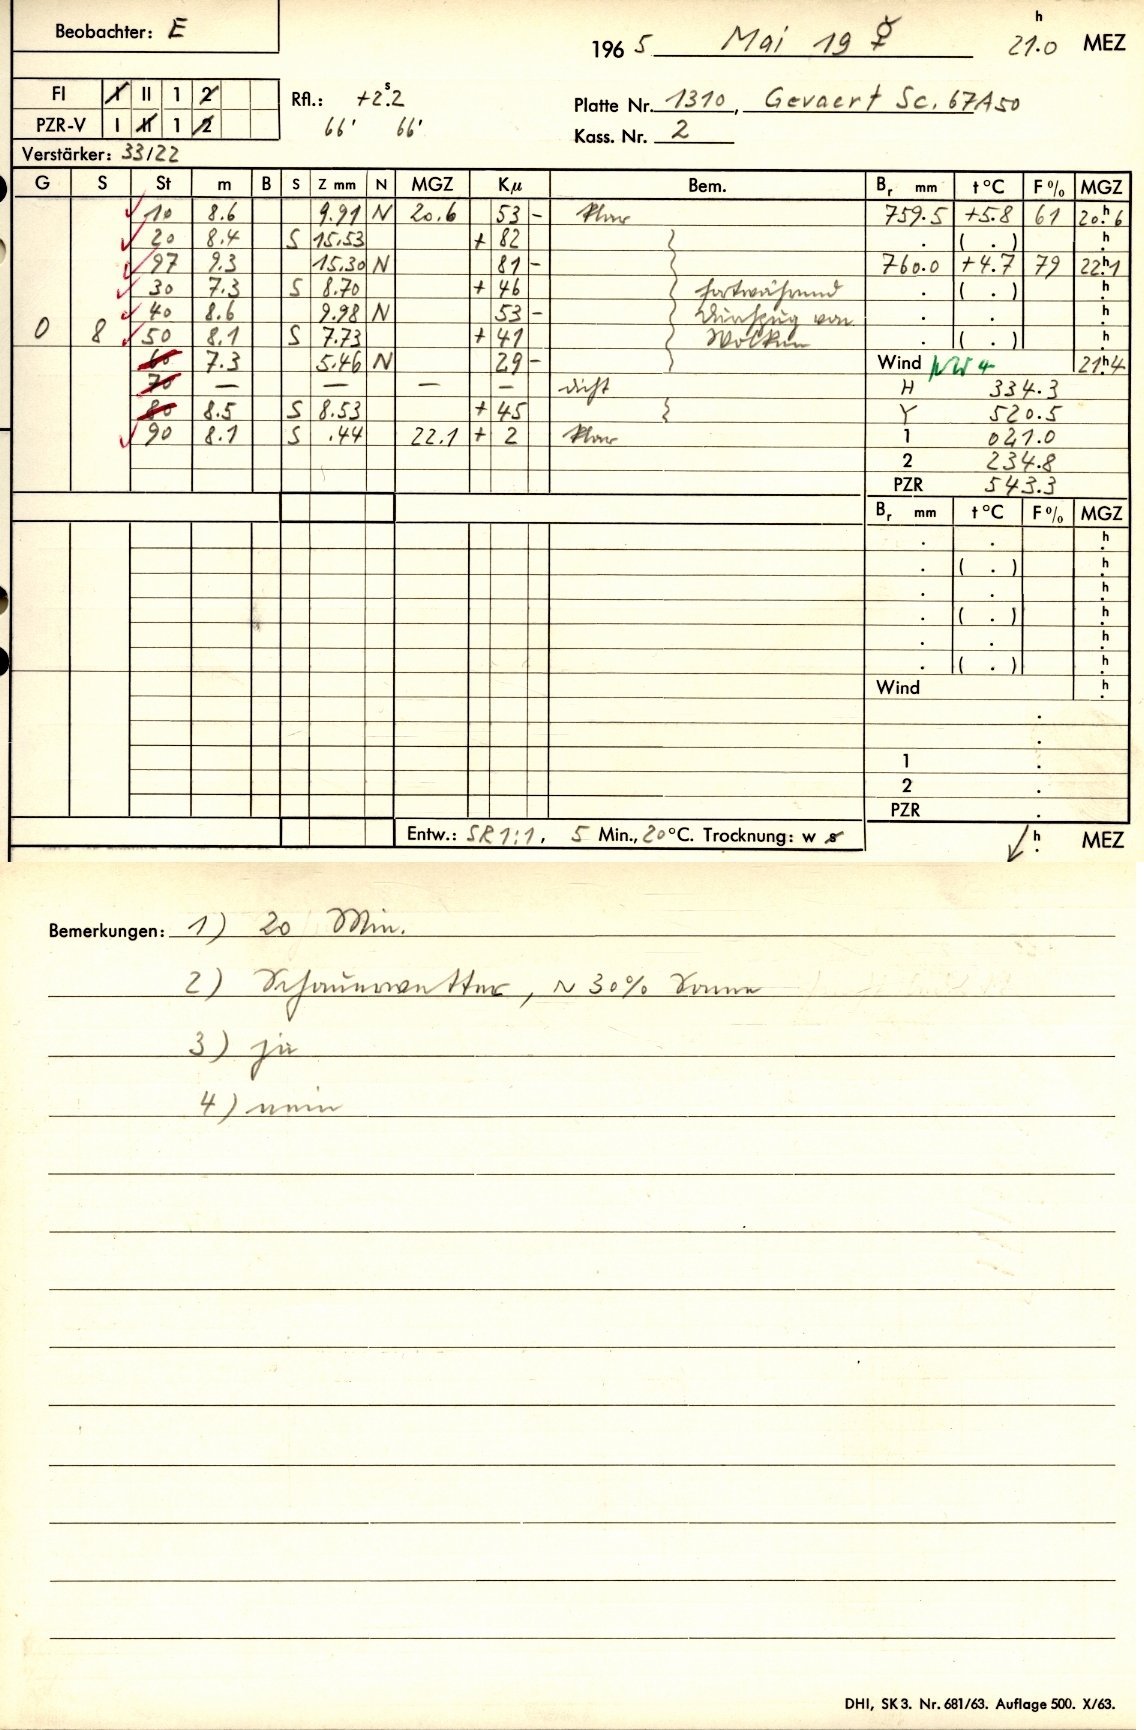 Beobachter: E
196 5 Mai 19 ☿ 21.0 h MEZ
FI I II 1 2 Rfl.: +2.s2 Platte Nr. 1310, Gevaert Sc. 67A50
PZR-V I II 1 2 66' 66' Kass. Nr. 2
Verstärker: 33/22
G S St m B S Z mm N MGZ Kμ Bem. Br mm t°C F% MGZ
10 8.6 9.91 N 20.6 53 - klar 759.5 +5.8 61 20.h6
20 8.4 S 15.53 + 82 } . ( . ) h.
97 9.3 15.30 N 81 - } 760.0 +4.7 79 22.h1
30 7.3 S 8.70 + 46 } fortwährend . ( . ) h.
40 8.6 9.98 N 53 - } Durchzug von . . h.
0 8 50 8.1 S 7.73 + 41 } Wolken . ( . ) h.
60 7.3 5.46 N 29 - } Wind NW 4 21.h4
70 — — — — dicht H 334.3
80 8.5 S 8.53 + 45 } Y 520.5
90 8.1 S .44 22.1 + 2 klar 1 041.0
2 234.8
PZR 543.3
Br mm t°C F% MGZ
. . h.
. ( . ) h.
. . h.
. ( . ) h.
. . h.
. ( . ) h.
Wind h.
.
.
1 .
2 .
PZR .
Entw.: SR 1:1, 5 Min., 20°C. Trocknung: w s h. MEZ
Bemerkungen: 1) 20 Min.
2) Schauerwetter, ~ 30% Sonne
3) ja
4) nein
DHI, SK 3. Nr. 681/63. Auflage 500. X/63.